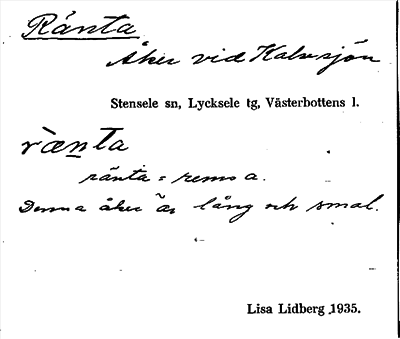 Ränta
Åker vid Kalvsjön
Stensele sn, Lycksele tg, Västerbottens l.
ræ̀nta
ränta = remsa.
Denna åker är lång och smal.
Lisa Lidberg 1935.